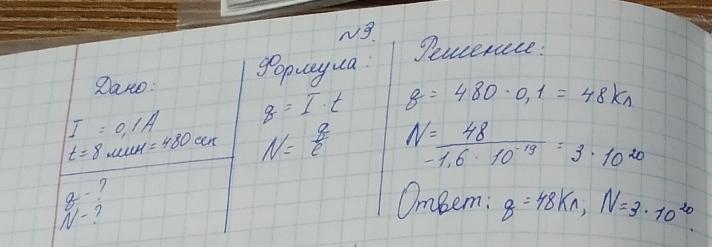 №3.
Дано:
I = 0,1А
t = 8 мин = 480 сек
q - ?
N - ?
Формула:
q = I · t
N = q/e
Решение:
q = 480 · 0,1 = 48Кл
N = 48/-1,6 · 10⁻¹⁹ = 3 · 10²⁰
Ответ: q = 48Кл, N = 3 · 10²⁰.